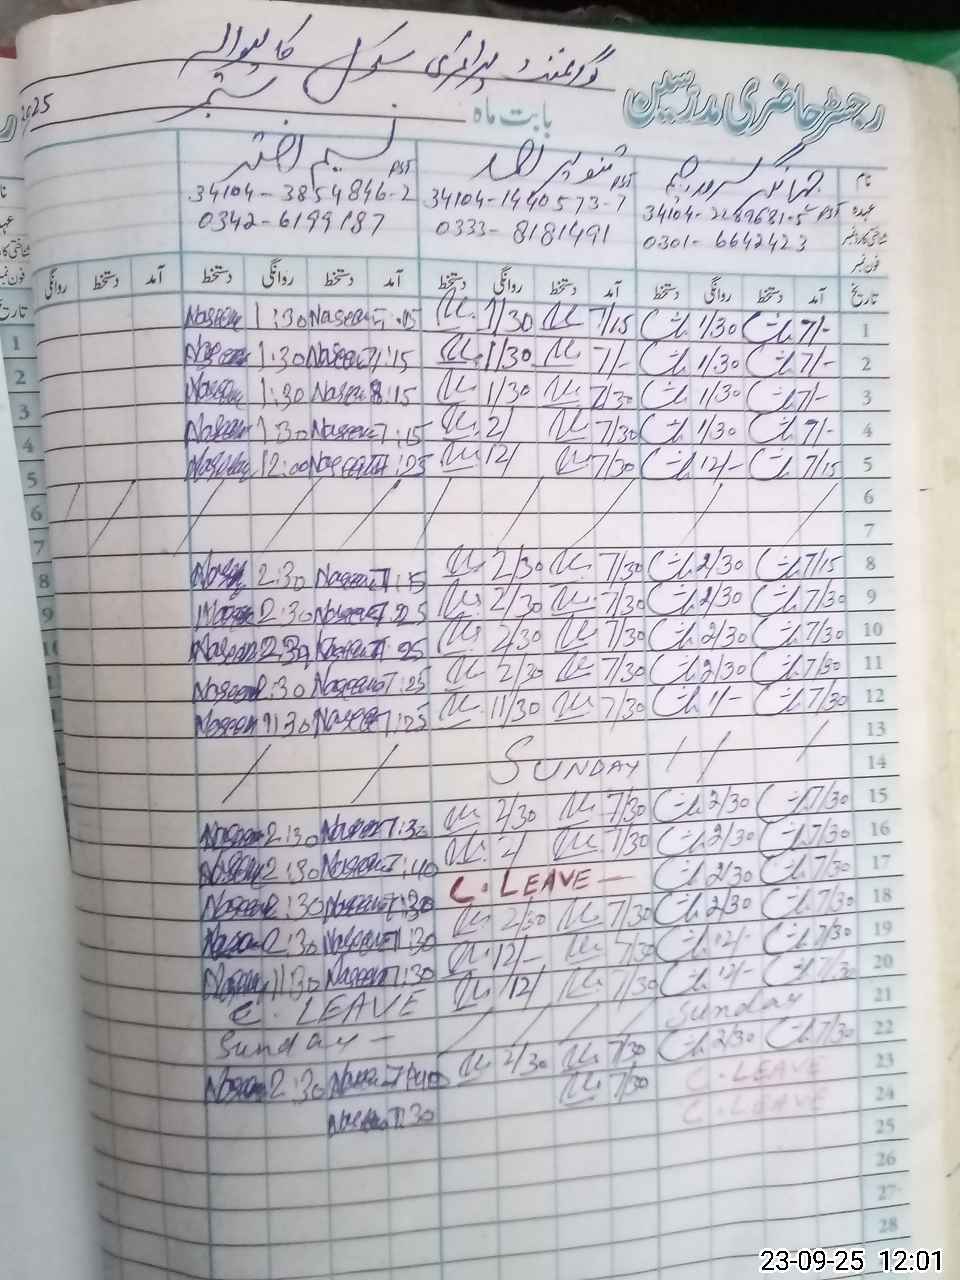 گورنمنٹ پرائمری سکول
رجسٹر حاضری مدرسین
بابت ماہ ستمبر 2025
نام نسیم اختر تنویر احمد
عہدہ PST PST PST
شناختی کارڈ نمبر 34104-3854846-2 34104-1440573-7
فون نمبر 0342-6199187 0333-8181491 0301-6642423
تاریخ آمد دستخط روانگی دستخط آمد دستخط روانگی دستخط آمد دستخط روانگی دستخط آمد دستخط روانگی
1 7/- 1/30 7/15 1/30 7:15 Naseem 1:30 Naseem
2 7/- 1/30 7/- 1/30 7:15 Naseem 1:30 Naseem
3 7/- 1/30 7/30 1/30 8:15 Naseem 1:30 Naseem
4 1/30 7/30 2/ 7:15 Naseem 1:30 Naseem
5 7/15 12/- 7/30 12/ 7:25 Naseem 12:00 Naseem
6
7
8 7/15 2/30 7/30 2/30 7:15 Naseem 2:30
9 7/30 2/30 7/30 2/30 7:25 Naseem 2:30 Naseem
10 7/30 2/30 7/30 2/30 7:25 Naseem 2:30 Naseem
11 7/30 2/30 7/30 2/30 7:25 Naseem 2:30 Naseem
12 7/30 1/- 7/30 11/30 7:25 Naseem 11:30 Naseem
13
14 SUNDAY
15 7/30 2/30 7/30 2/30 7:30 Naseem 2:30 Naseem
16 7/30 2/30 7/30 2/ 7:40 Naseem 2:30 Naseem
17 7/30 2/30 C. LEAVE — 7:30 Naseem 2:30 Naseem
18 7/30 2/30 7/30 2/30 7:30 Naseem 2:30 Naseem
19 7/30 12/- 7/30 12/- 7:30 Naseem 11:30 Naseem
20 7/30 12/- 7/30 12/ C. LEAVE
21 Sunday Sunday —
22 7/30 2/30 7/30 2/30 7:40 Naseem 2:30 Naseem
23 C. LEAVE 7/30 7:30 Naseem
24 C. LEAVE
25
26
27
28
23-09-25 12:01